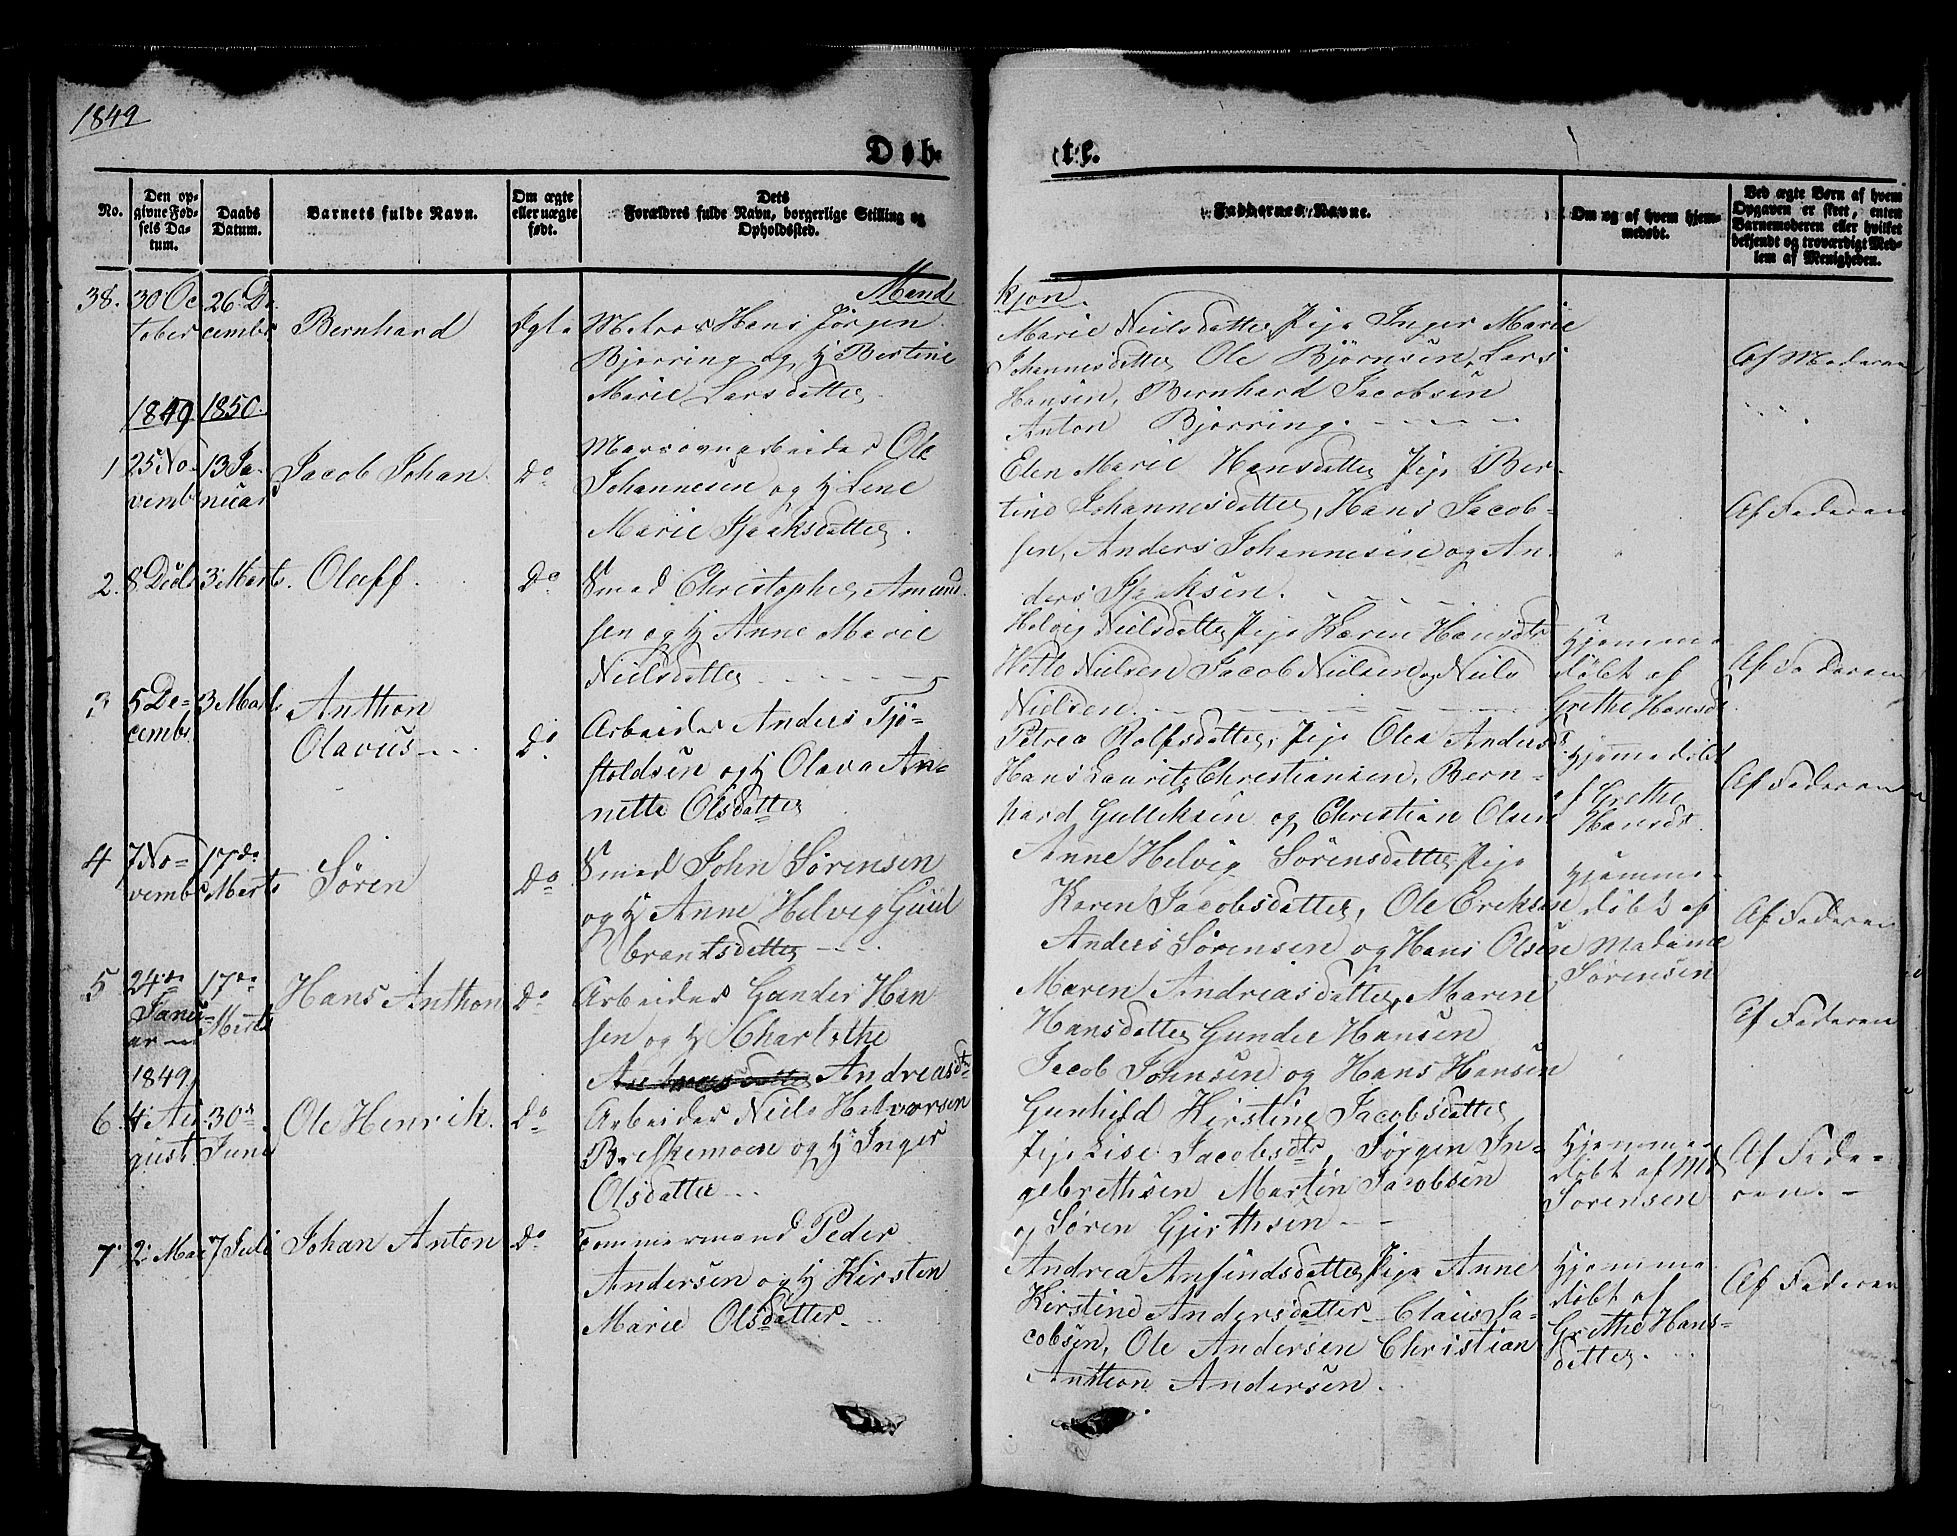 1849
Døb-
te.
No.
Den op-
givne Fød-
sels Da-
tum.
Daabs
Datum.
Barnets fulde Navn.
Om ægte
eller uægte
født.
Dets
Forældres fulde Navn, borgerlige Stilling og
Opholdssted.
Faddernes Navne.
Om og af hvem hjem-
medøbt.
Ved ægte Børn af hvem
Opgaven er skeet, enten
Barnemoderen eller hvilket
bekjendt og troværdigt Med-
lem af Menigheden.
Mand
kjøn.
38.
30 Oc
tober
26 De
cembr
Bernhard
Ægte
Matros Hans Jörgen
Bjørring og H Bertine
Marie Larsdatter
Marie Neilsdatter, Pige Inger Marie
Johannesdatter Ole Björnsen, Lars
Hansen, Bernhard Jacobsen
Anton Bjørring.
Af Moderen
1849
1850.
1
25 No
vemb
13 Ja-
nuar
Jacob Johan
Do
Ole
Johannesen og H Lene
Marie Isaksdatter.
Elen Marie Hansdatter Pige Ber-
tine Johannesdatter, Hans Jacob-
sen, Anders Johannesen og An
ders Isaksen.
Af Faderen
2.
8
3 Marts.
Olaff.
Do
Smed Christopher Amund
sen og H Anne Marie
Neilsdatter
Helvig Nielsdatter Pige Karen Hansdtr
Nielsen Jacob Nielsen og Neils
Nielsen
Hjemme
døbt af
Grethe Hansdt
Af Faderen
3
5 De-
cembr.
3 Marts
Anthon
Olavus
Do.
Arbeider Anders Tjö-
stoldsen og H Olava An-
nette Olsdatter
Petrea Rolfsdatter, Pige Olea Andersdt
Hans Lauritz Christiansen, Bern-
hard Gulliksen og Christian Olsen
Hjemmedøbt
af Grethe
Hansdt.
Af Faderen
4
7 No-
vembr
17de
Marts
Sören
Do
Smed John Sørensen
og H Anne Helvig Guul
brantsdatter
Anne Helvig Sörensdatter Pige
Karen Jacobsdatter, Ole Eriksen
Anders Sørensen og Hans Olsen
Hjemme-
døbt af
Madame
Sørensen
Af Faderen
5
24de
Janu-
ar
17de
Marts
Hans Anthon
Do
Arbeider Gunder Han
sen og H Charlothe
Andreasdtr
Maren Andreasdatter, Maren
Hansdatter Gunder Hansen
Jacob Johnsen og Hans Hansen
Af Faderen
1849
6.
4. Au-
gust.
30te
Juni
Ole Henrik.
Do
Arbeider Neils Halvorsen
Breskemoen og H Inger
Olsdatter
Gunhild Kirstine Jacobsdatter
Pige Lise Jacobsdtr, Jørgen In-
gebrethsen Martin Jacobsen
og Søren Gjerthsen
Hjemme
døbt af Md
Sørensen
Af Fade-
ren.
7.
2. Mai
7 Juli
Johan Anton
Do
Tømmermand Peder
Andersen og H Kirsten
Marie Olsdatter
Andrea Anfindsdatter Pige Anne
Kirstine Andersdatter Claus Ja-
cobsen, Ole Andersen Christian
Anthon Andersen.
Hjemme-
døbt af
Grethe Hans-
datter.
Af Faderen